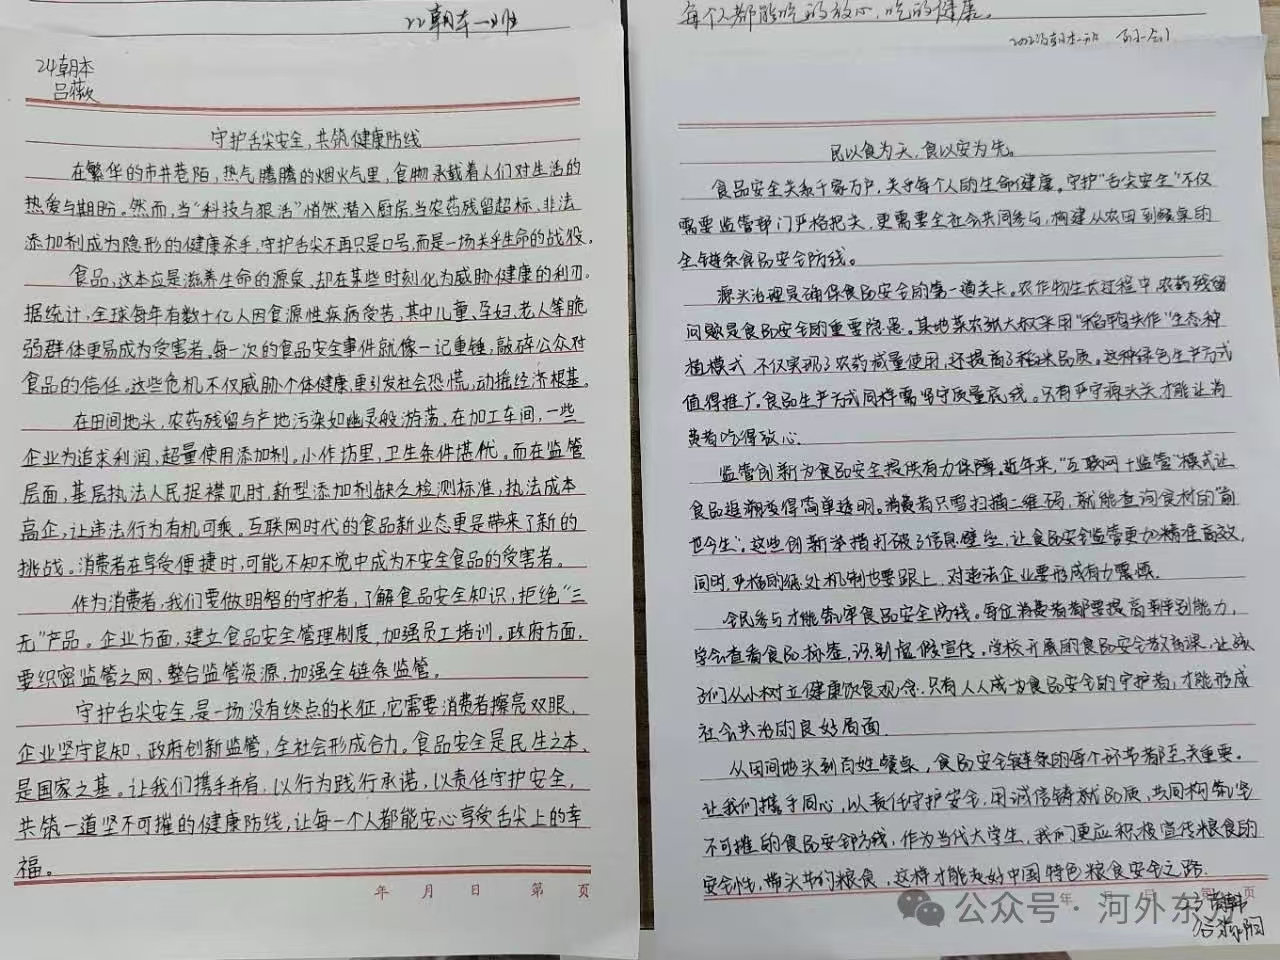 22朝本一班
24朝本
吕薇
守护舌尖安全,共筑健康防线
在繁华的市井巷陌,热气腾腾的烟火气里,食物承载着人们对生活的
热爱与期盼。然而,当“科技与狠活”悄然潜入厨房,当农药残留超标、非法
添加剂成为隐形的健康杀手,守护舌尖不再只是口号,而是一场关乎生命的战役。
食品,这本应是滋养生命的源泉,却在某些时刻化为威胁健康的利刃。
据统计,全球每年有数十亿人因食源性疾病受苦,其中儿童、孕妇、老人等脆
弱群体更易成为受害者。每一次的食品安全事件就像一记重锤,敲碎公众对
食品的信任。这些危机不仅威胁个体健康,更引发社会恐慌,动摇经济根基。
在田间地头,农药残留与产地污染如幽灵般游荡,在加工车间,一些
企业为追求利润,超量使用添加剂。小作坊里,卫生条件堪忧。而在监管
层面,基层执法人民捉襟见肘,新型添加剂缺乏检测标准,执法成本
高企,让违法行为有机可乘。互联网时代的食品新业态更是带来了新的
挑战。消费者在享受便捷时,可能不知不觉中成为不安全食品的受害者。
作为消费者,我们要做明智的守护者,了解食品安全知识,拒绝“三
无”产品。企业方面,建立食品安全管理制度,加强员工培训。政府方面,
要织密监管之网、整合监管资源,加强全链条监管。
守护舌尖安全,是一场没有终点的长征,它需要消费者擦亮双眼,
企业坚守良知、政府创新监管,全社会形成合力。食品安全是民生之本,
是国家之基。让我们携手并肩,以行为践行承诺,以责任守护安全,
共筑一道坚不可摧的健康防线,让每一个人都能安心享受舌尖上的幸
福。
年 月 日 第 页
每个人都能吃的放心,吃的健康。
民以食为天,食以安为先。
食品安全关系千家万户,关乎每个人的生命健康。守护“舌尖安全”不仅
需要监管部门严格把关,更需要全社会共同参与,构建从农田到餐桌的
全链条食品安全防线。
源头治理是确保食品安全的第一道关卡。农作物生长过程中,农药残留
问题是食品安全的重要隐患。某地菜农张大叔采用“稻鸭共作”生态种
植模式,不仅实现了农药减量使用,还提高了稻米品质。这种绿色生产方式
值得推广。食品生产方式同样需坚守质量底线。只有严守源头关,才能让消
费者吃得放心。
监管创新为食品安全提供有力保障。近年来,“互联网+监管”模式让
食品追溯变得简单透明。消费者只需扫描二维码,就能查询食材的“前
世今生”。这些创新举措打破了信息壁垒,让食品安全监管更加精准高效,
同时,严格的惩处机制也要跟上,对违法企业要形成有力震慑。
全民参与才能筑牢食品安全防线。每位消费者都要提高辨别能力,
学会查看食品标签,识别虚假宣传。学校开展的食品安全教育课,让孩
子们从小树立健康饮食观念。只有人人成为食品安全的守护者,才能形成
社会共治的良好局面。
从田间地头到百姓餐桌,食品安全链条的每个环节都至关重要。
让我们携手同心,以责任守护安全,用诚信铸就品质,共同构筑坚
不可摧的食品安全防线,作为当代大学生,我们更应积极宣传粮食的
安全性,带头节约粮食,这样才能走好中国特色粮食安全之路。
年 月 日 第 页
公众号·河外东方